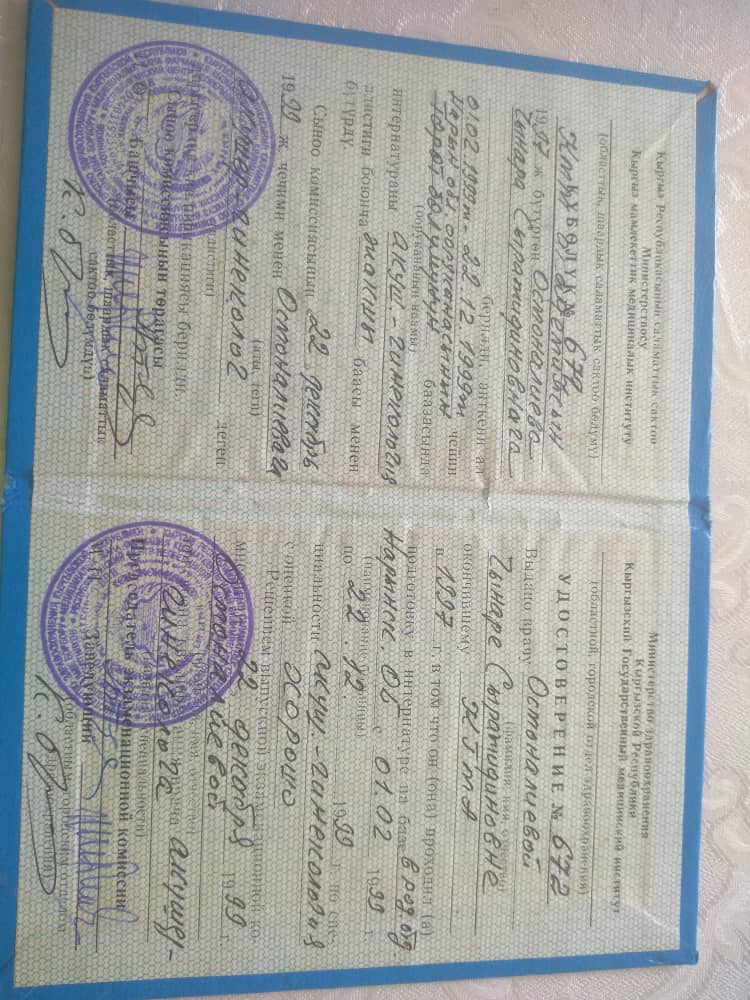 Кыргыз Республикасынын саламаттык сактоо
Министерствосу
Кыргыз мамлекеттик медициналык институту
(областтык, шаардык саламаттык сактоо бөлүмү)
КҮБӨЛҮК № 672
1997 ж. бүтүргөн Остоналиева
Чынара Сыратидиновнага
берилди, анткени ал
01.02.1999 - 22.12.1999 чейин
Нарын обл. ооруканасынын
төрөт бөлүмүнүн базасында
(оорукананын наамы)
интернатураны акуш-гинекология
адистиги боюнча жакшы баасы менен
бүтүрдү
Сыноо комиссиясынын 22 декабрь
1999 ж. чечими менен Остоналиевага
(аты, теги)
акушер-гинеколог деген
(адистиги)
квалификациясы берилди.
Сыноо комиссиясынын төрагасы
башчысы
(областтык, шаардык саламаттык
сактоо бөлүмдү)
Министерство здравоохранения
Кыргызской Республики
Кыргызский Государственный медицинский институт
(областной, городской отдел здравоохранения)
УДОСТОВЕРЕНИЕ № 672
Выдано врачу Остоналиевой
(фамилия, имя, отчество)
Чынаре Сыратидиновне
окончившему КГМА
в 1997 г. в том что он (она) проходил (а)
подготовку в интернатуре на базе в род. отд.
Нарынск. ОБ с 01.02 1999 г.
по 22.12. 1999 г. по спе-
циальности акуш.-гинекология
с оценкой хорошо
Решением выпускной экзаменационной ко-
миссии 22 декабря 1999 г.
Остоналиевой
акушер-
гинеколога
Председатель экзаменационной комиссии
Заведующий